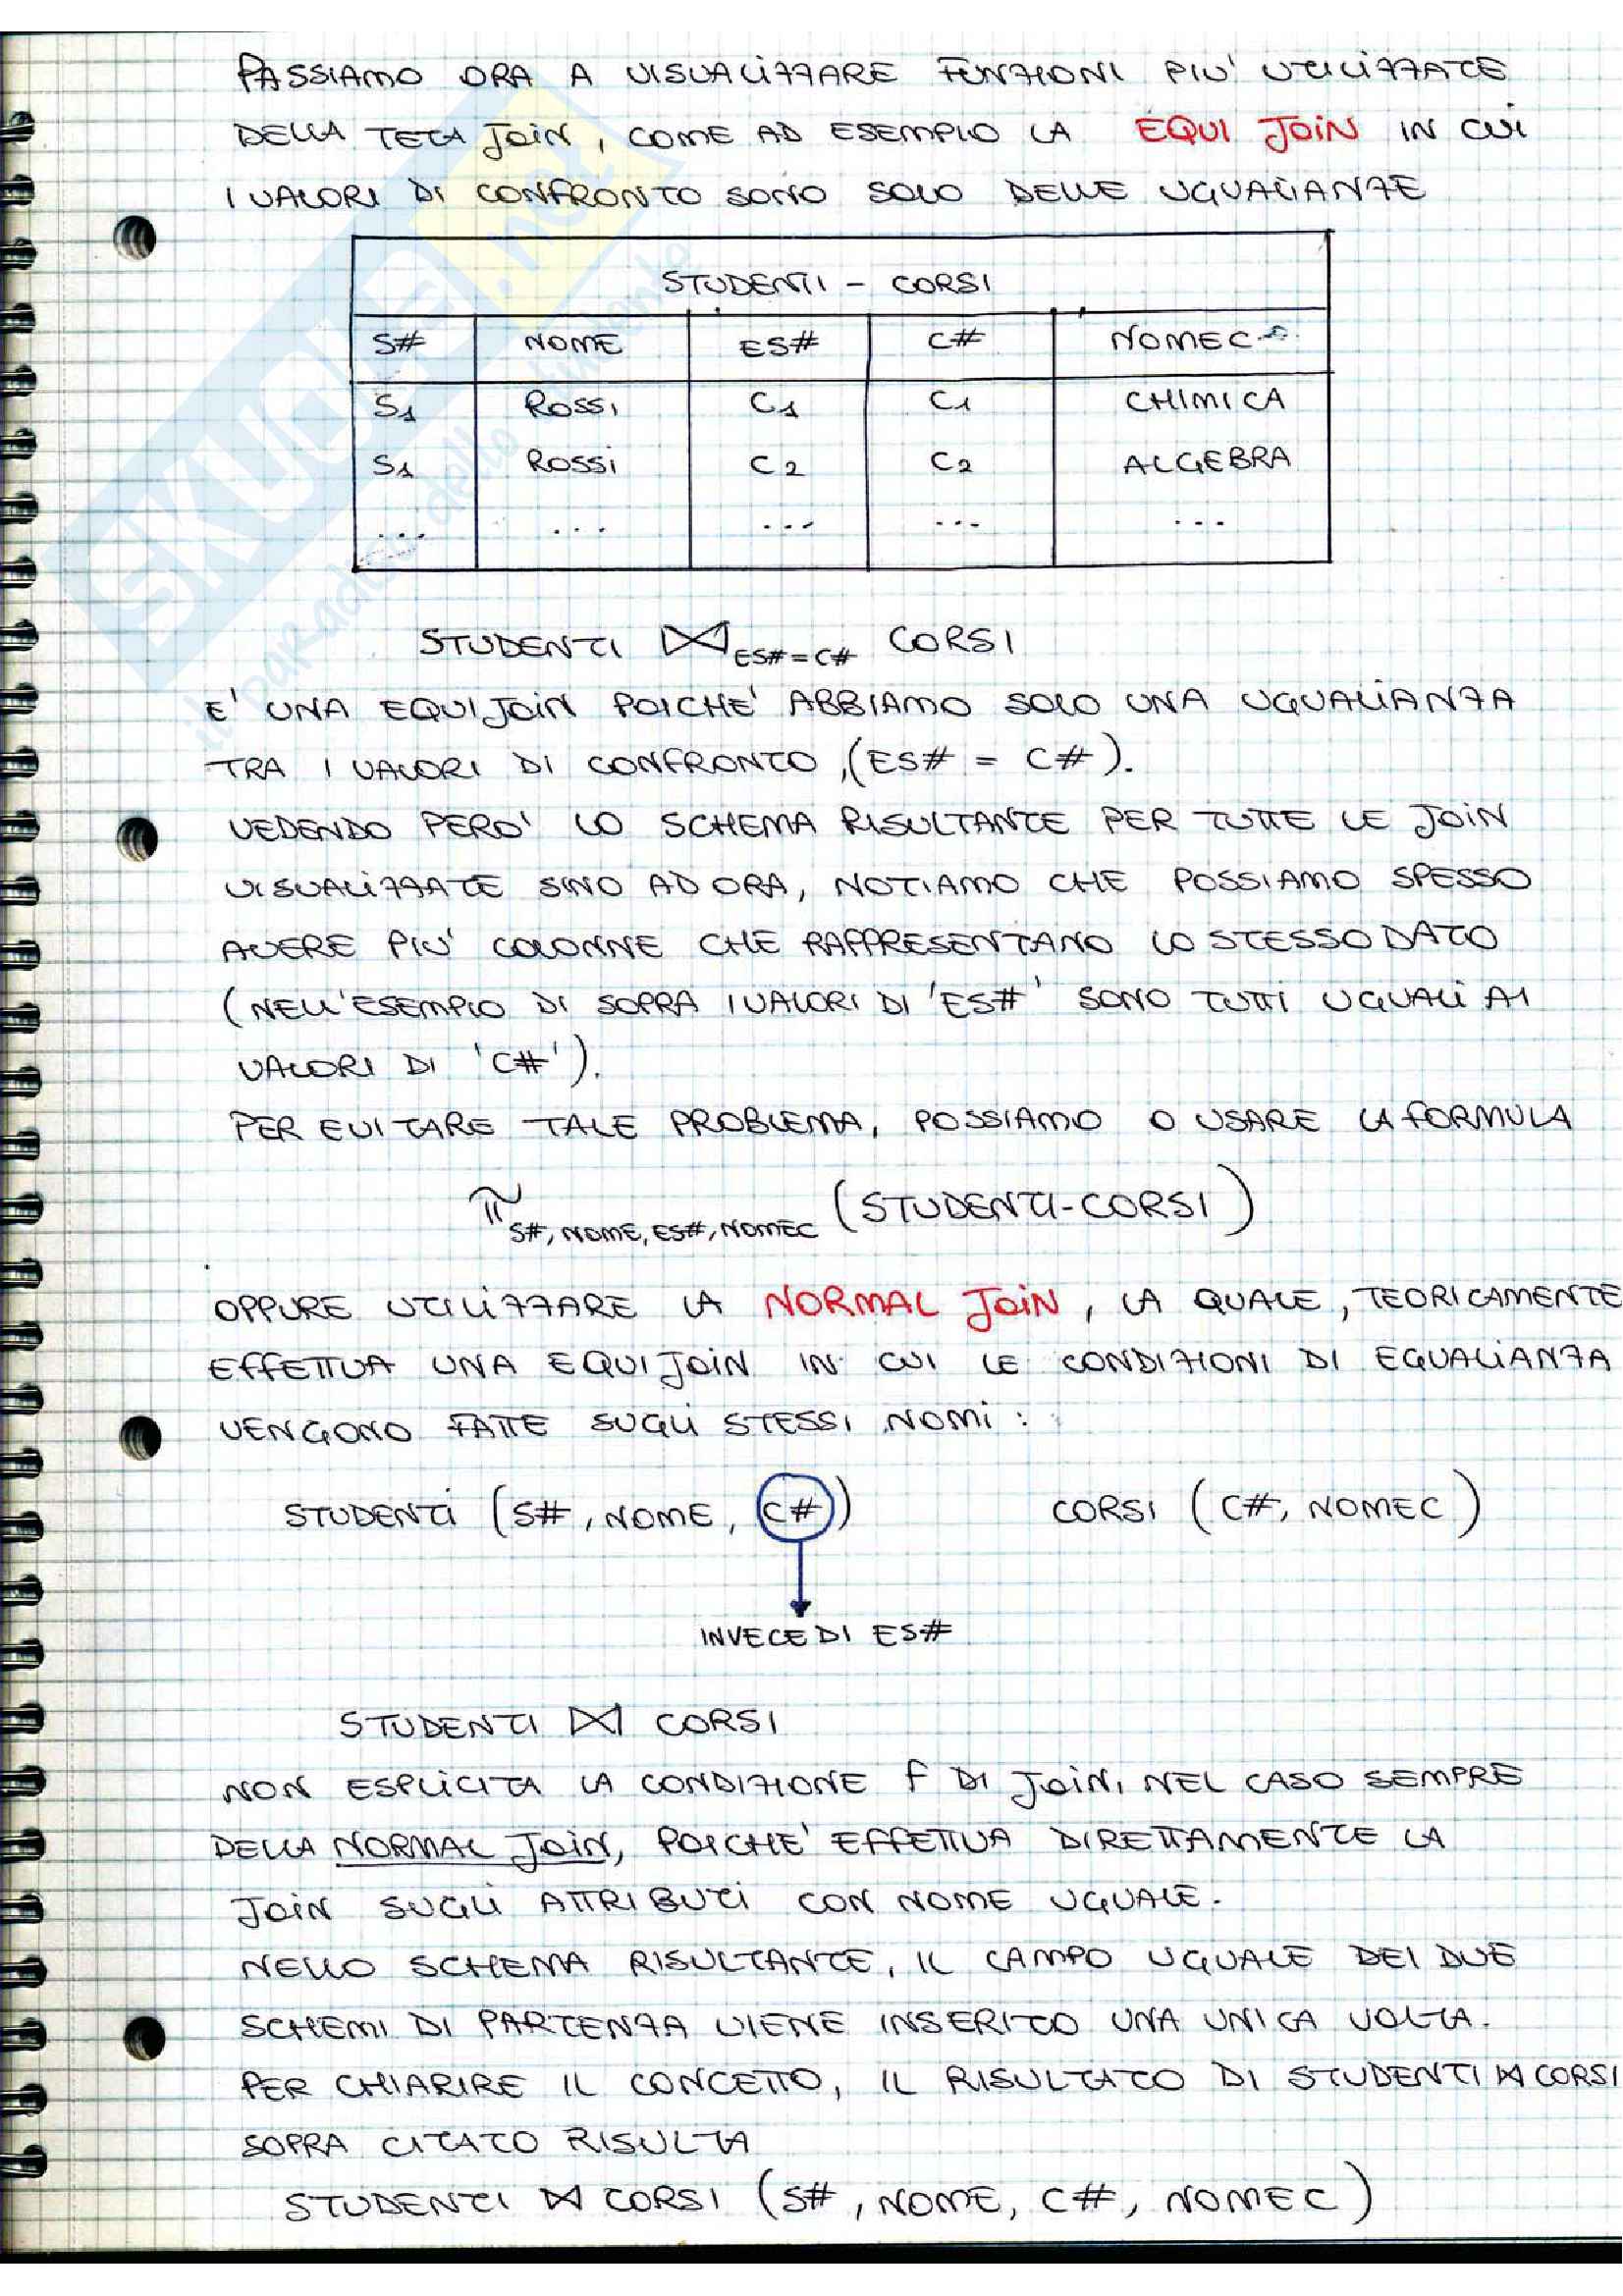 PASSIAMO ORA A VISUALIZZARE FUNZIONI PIU' UTILIZZATE
DELLA TETA JOIN, COME AD ESEMPIO LA EQUI JOIN IN CUI
I VALORI DI CONFRONTO SONO SOLO DELLE UGUALIANZE
STUDENTI - CORSI
S# NOME ES# C# NOMEC
S1 ROSSI C1 C1 CHIMICA
S1 ROSSI C2 C2 ALGEBRA
... ... ... ... ...
STUDENTI ⋈ ES#=C# CORSI
E' UNA EQUIJOIN POICHE' ABBIAMO SOLO UNA UGUALIANZA
TRA I VALORI DI CONFRONTO, (ES# = C#).
VEDENDO PERO' LO SCHEMA RISULTANTE PER TUTTE LE JOIN
VISUALIZZATE SINO AD ORA, NOTIAMO CHE POSSIAMO SPESSO
AVERE PIU' COLONNE CHE RAPPRESENTANO LO STESSO DATO
(NELL'ESEMPIO DI SOPRA I VALORI DI 'ES#' SONO TUTTI UGUALI AI
VALORI DI 'C#').
PER EVITARE TALE PROBLEMA, POSSIAMO O USARE LA FORMULA
π S#, NOME, ES#, NOMEC (STUDENTI-CORSI)
OPPURE UTILIZZARE LA NORMAL JOIN, LA QUALE, TEORICAMENTE
EFFETTUA UNA EQUIJOIN IN CUI LE CONDIZIONI DI EGUALIANZA
VENGONO FATTE SUGLI STESSI NOMI:
STUDENTI (S#, NOME, C#) CORSI (C#, NOMEC)
INVECE DI ES#
STUDENTI ⋈ CORSI
NON ESPLICITA LA CONDIZIONE F DI JOIN, NEL CASO SEMPRE
DELLA NORMAL JOIN, POICHE' EFFETTUA DIRETTAMENTE LA
JOIN SUGLI ATTRIBUTI CON NOME UGUALE.
NELLO SCHEMA RISULTANTE, IL CAMPO UGUALE DEI DUE
SCHEMI DI PARTENZA VIENE INSERITO UNA UNICA VOLTA.
PER CHIARIRE IL CONCETTO, IL RISULTATO DI STUDENTI ⋈ CORSI
SOPRA CITATO RISULTA
STUDENTI ⋈ CORSI (S#, NOME, C#, NOMEC)
SKUOLA.net
il paradiso dello studente